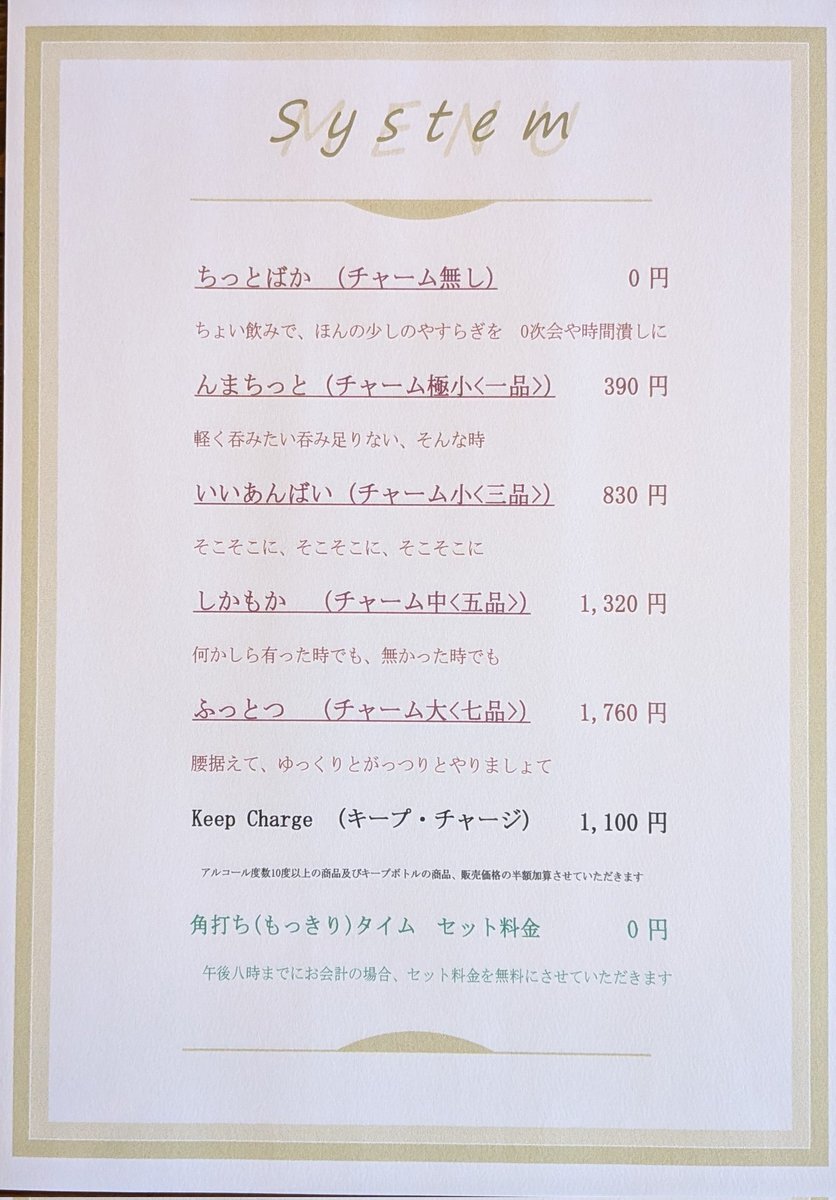 System
MENU
ちっとばか （チャーム無し） 0 円
ちょい飲みで、ほんの少しのやすらぎを 0次会や時間潰しに
んまちっと （チャーム極小<一品>） 390 円
軽く呑みたい呑み足りない、そんな時
いいあんばい （チャーム小<三品>） 830 円
そこそこに、そこそこに、そこそこに
しかもか （チャーム中<五品>） 1,320 円
何かしら有った時でも、無かった時でも
ふっとつ （チャーム大<七品>） 1,760 円
腰据えて、ゆっくりとがっつりとやりましょて
Keep Charge （キープ・チャージ） 1,100 円
アルコール度数10度以上の商品及びキープボトルの商品、販売価格の半額加算させていただきます
角打ち(もっきり)タイム セット料金 0 円
午後八時までにお会計の場合、セット料金を無料にさせていただきます